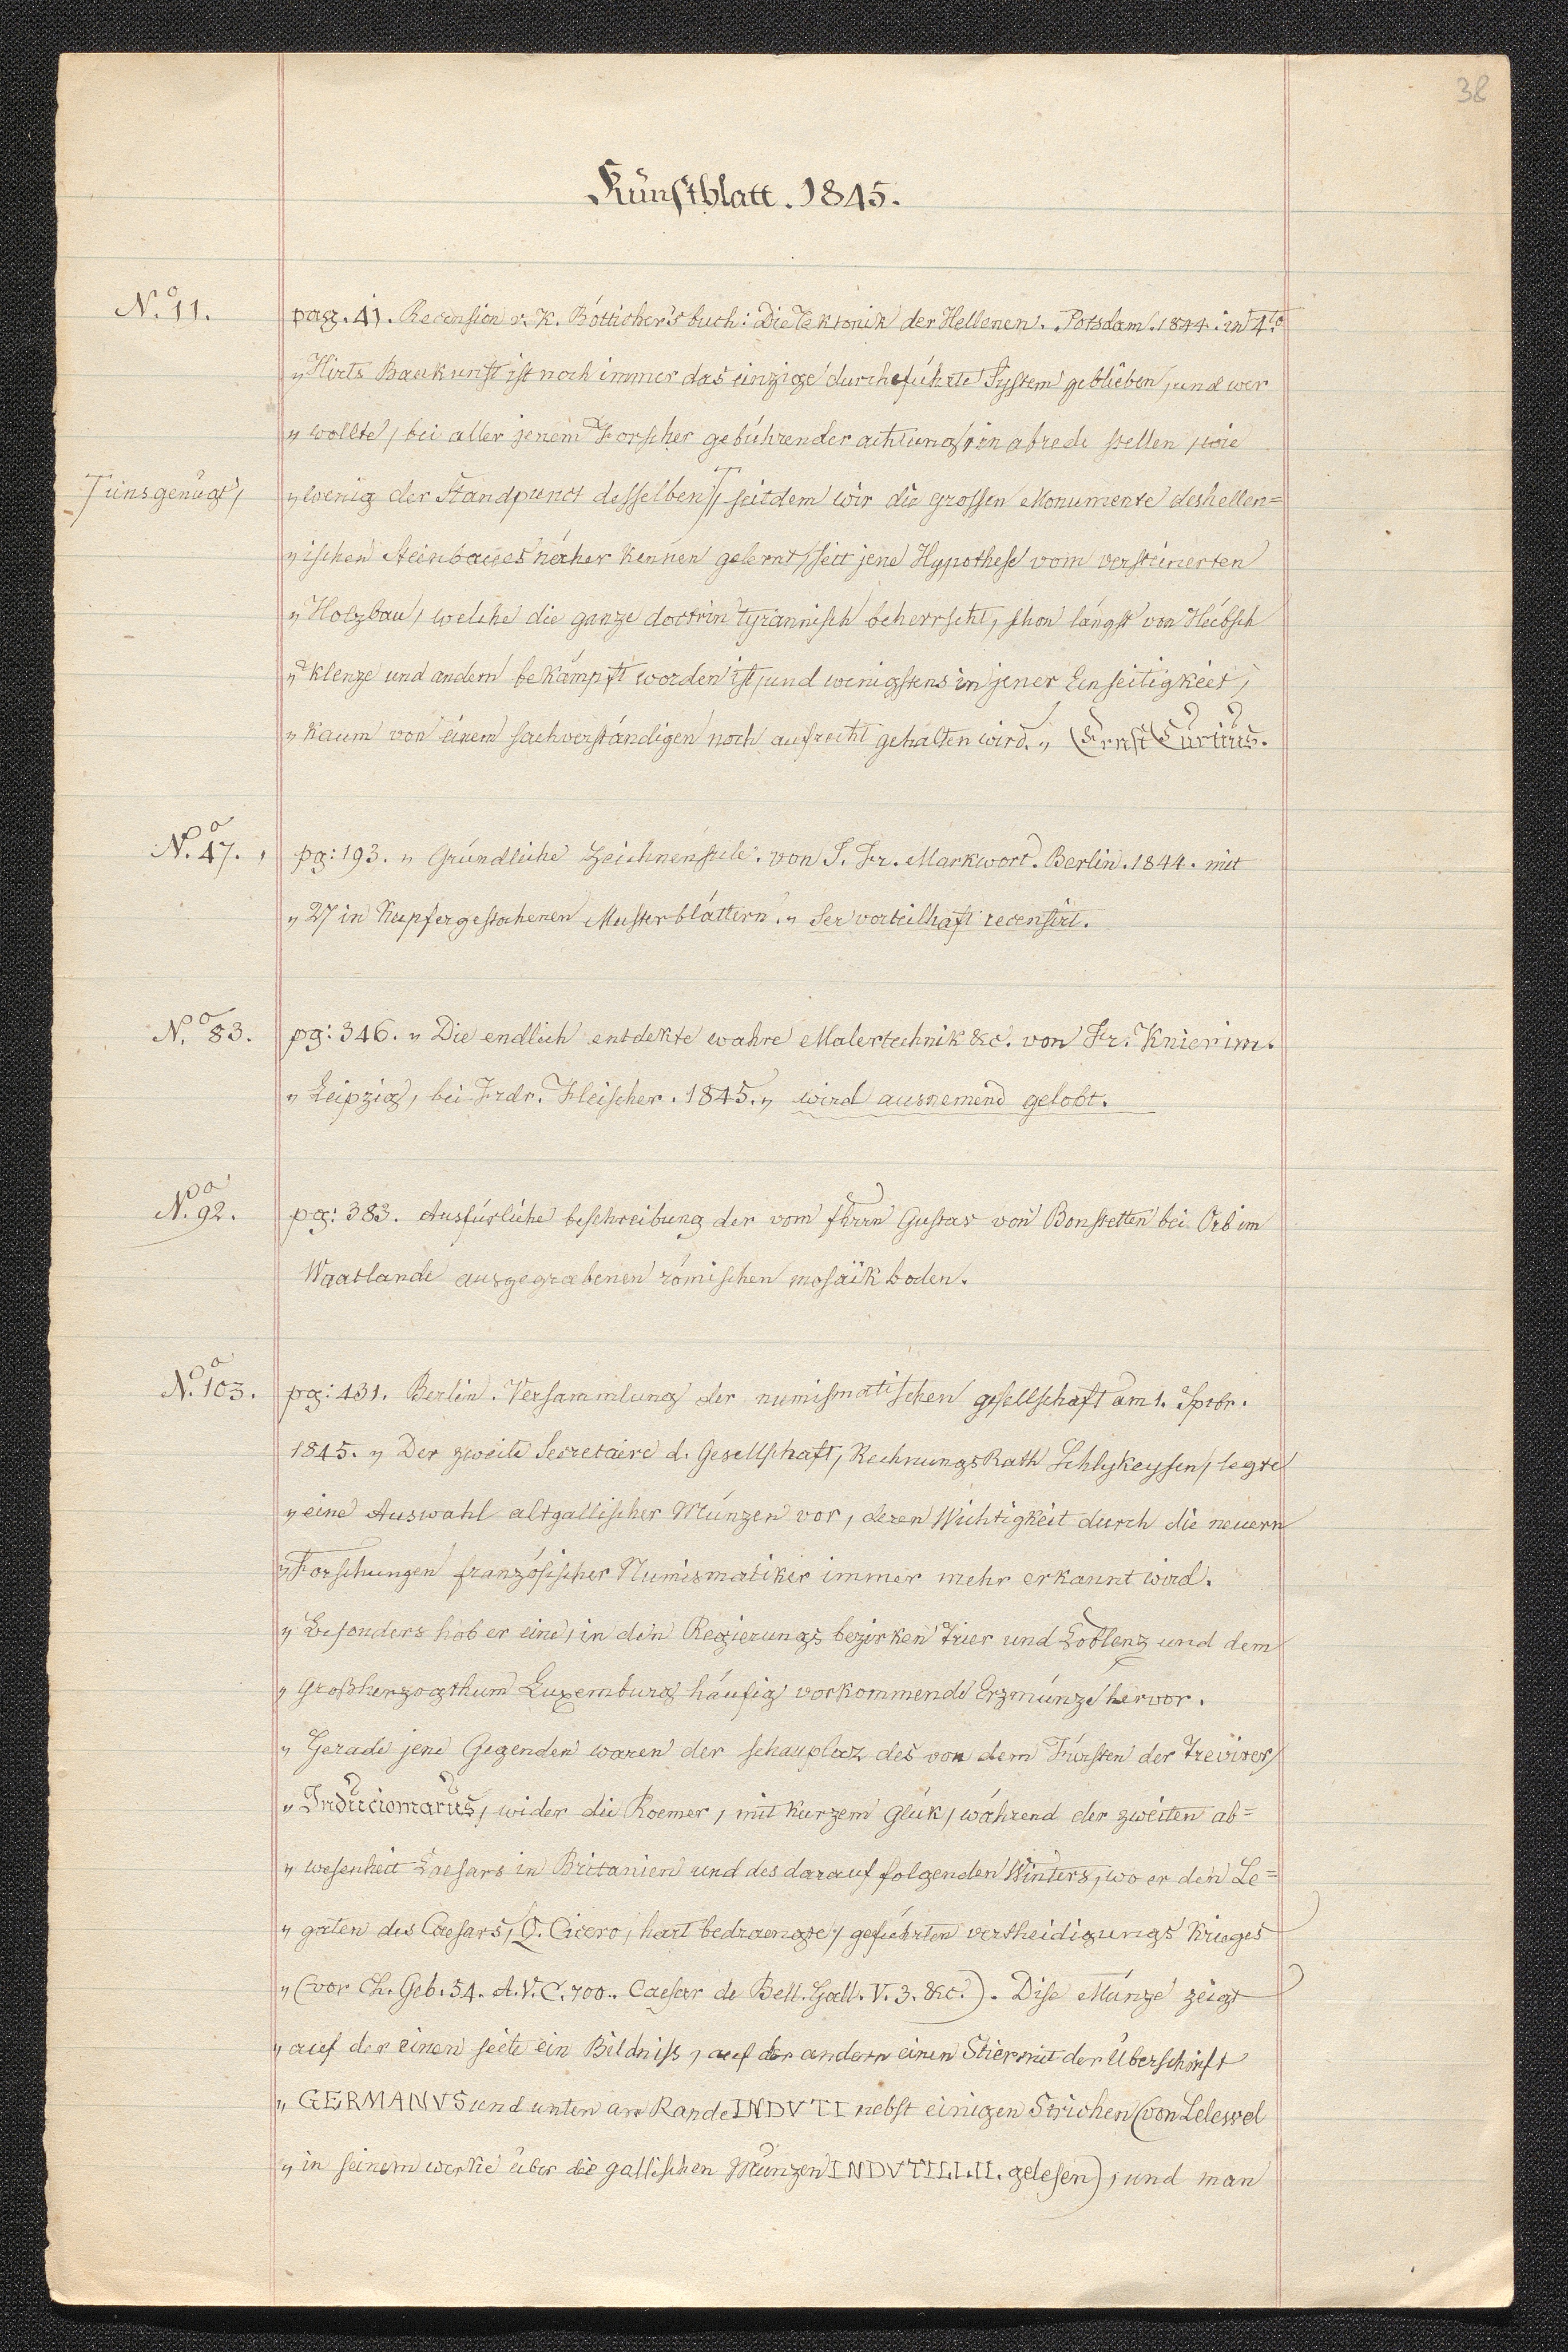 38
Kunstblatt. 1845.
No. 11.
pag. 41. Recension v. K. Bötticher's buch: Die Tektonik der Hellenen. Potsdam. 1844. in 4to
„Hirts Baukunst ist noch immer das einzige durcheführte System geblieben, und wer
„wollte, bei aller jenem Forscher gebührender achtung, in abrede stellen, wie
⊤ uns genügt,
„wenig der Standpunct desselben ⊤, seitdem wir die grossen Monumente des hellen=
„ischen Steinbaues näher kennen gelernt, seit jene Hypothese vom versteinerten
„Holzbau, welche die ganze doctrin tyrannisch beherrscht, schon längst von Hübsch
„Klenze und andern bekämpft worden ist, und wenigstens in jener Einseitigkeit,
„kaum von einem sachverständigen noch aufrecht gehalten wird. „ (Ernst Curtius.
No. 47.
pg: 193. „ Gründliche Zeichnenschule. von J. Fr. Markwort. Berlin. 1844. mit
„27 in Kupfer gestochenen Musterblättern. „ Ser vorteilhaft recensirt.
No. 83.
pg: 346. „ Die endlich entdekte wahre Malertechnik &c. von Fr. Knierim.
„Leipzig, bei Frdr. Fleischer. 1845. „ wird ausnemend gelobt.
No. 92.
pg: 383. Ausfürliche beschreibung der vom Herrn Gustav von Bonstetten bei Orb im
Waatlande ausgegrabenen römischen mosaïkboden.
No. 103.
pg: 431. Berlin. Versammlung der numismatischen gesellschaft am 1. Sptbr.
1845. „ Der zweite Secretaire d. Gesellschaft, RechnungsRath Schlykeysen, legte
„eine Auswahl altgallischer Münzen vor, deren Wichtigkeit durch die neuern
„Forschungen französischer Numismatiker immer mehr erkannt wird.
„Besonders hob er eine, in den Regierungsbezirken Trier und Coblenz und dem
„Großherzogthum Luxemburg häufig vorkommende Erzmünze hervor.
„Gerade jene Gegenden waren der schauplaz des von dem Fürsten der Trevirer,
„Induciomarus, wider die Roemer, mit kurzem Glük, während der zweiten ab=
„wesenheit Caesars in Britanien und des darauf folgenden Winters, wo er den Le=
„gaten des Caesars, Q. Cicero, hart bedraengte, geführten vertheidigungs krieges
„(vor Ch. Geb. 54. A.V.C. 700.. Caesar de Bell. Gall. V. 3. &c.). Dise Münze zeigt
„auf der einen seite ein Bildniss, auf der andern einen Stier mit der Überschrift
„GERMANVS und unten am Rande INDVTI nebst einigen Strichen (von Lelewel
„in seinem werke über die gallischen Münzen INDVTILLII. gelesen), und man